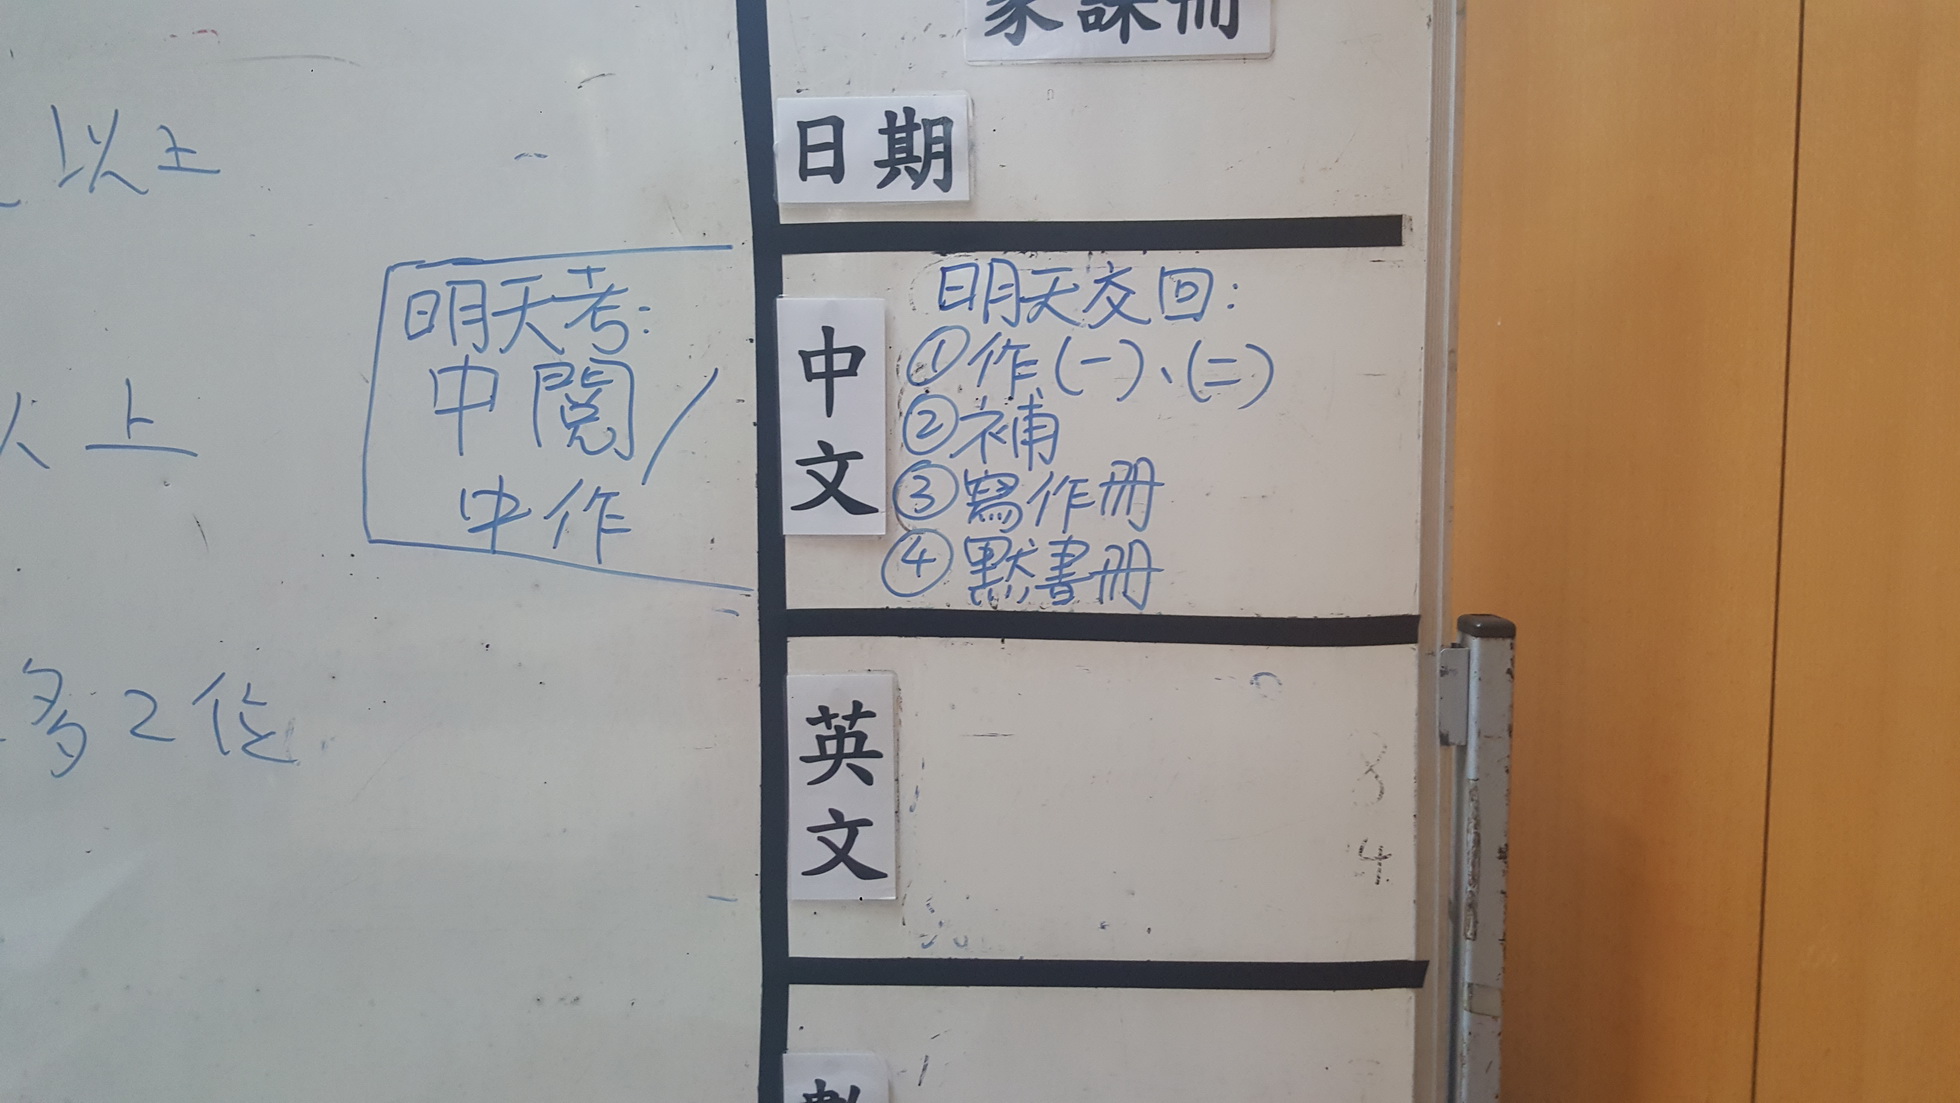 家課冊
日期
以上
明天考:
中閱/
中作
中文
明天交回:
①作(一)、(二)
②補
③寫作冊
④默書冊
上
多2位
英文
4
數